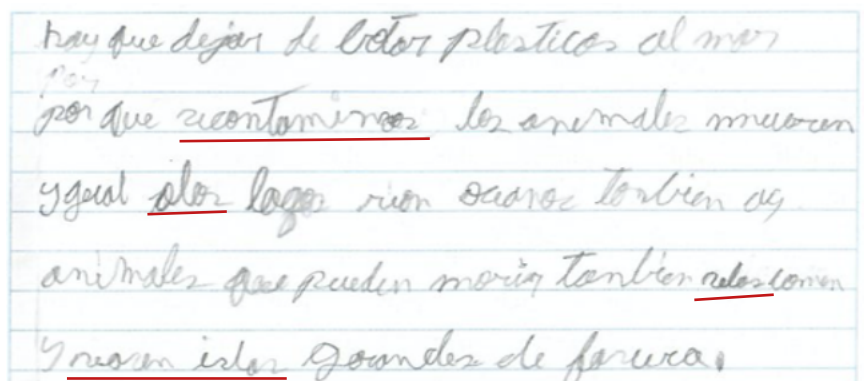 hay que dejar de botar plasticos al mar
por
por que sicontaminos los animales mueren
ygual alos lagos rios oceanos tanbien ay
animales que pueden morir tanbien selos comen
y islas grandes de